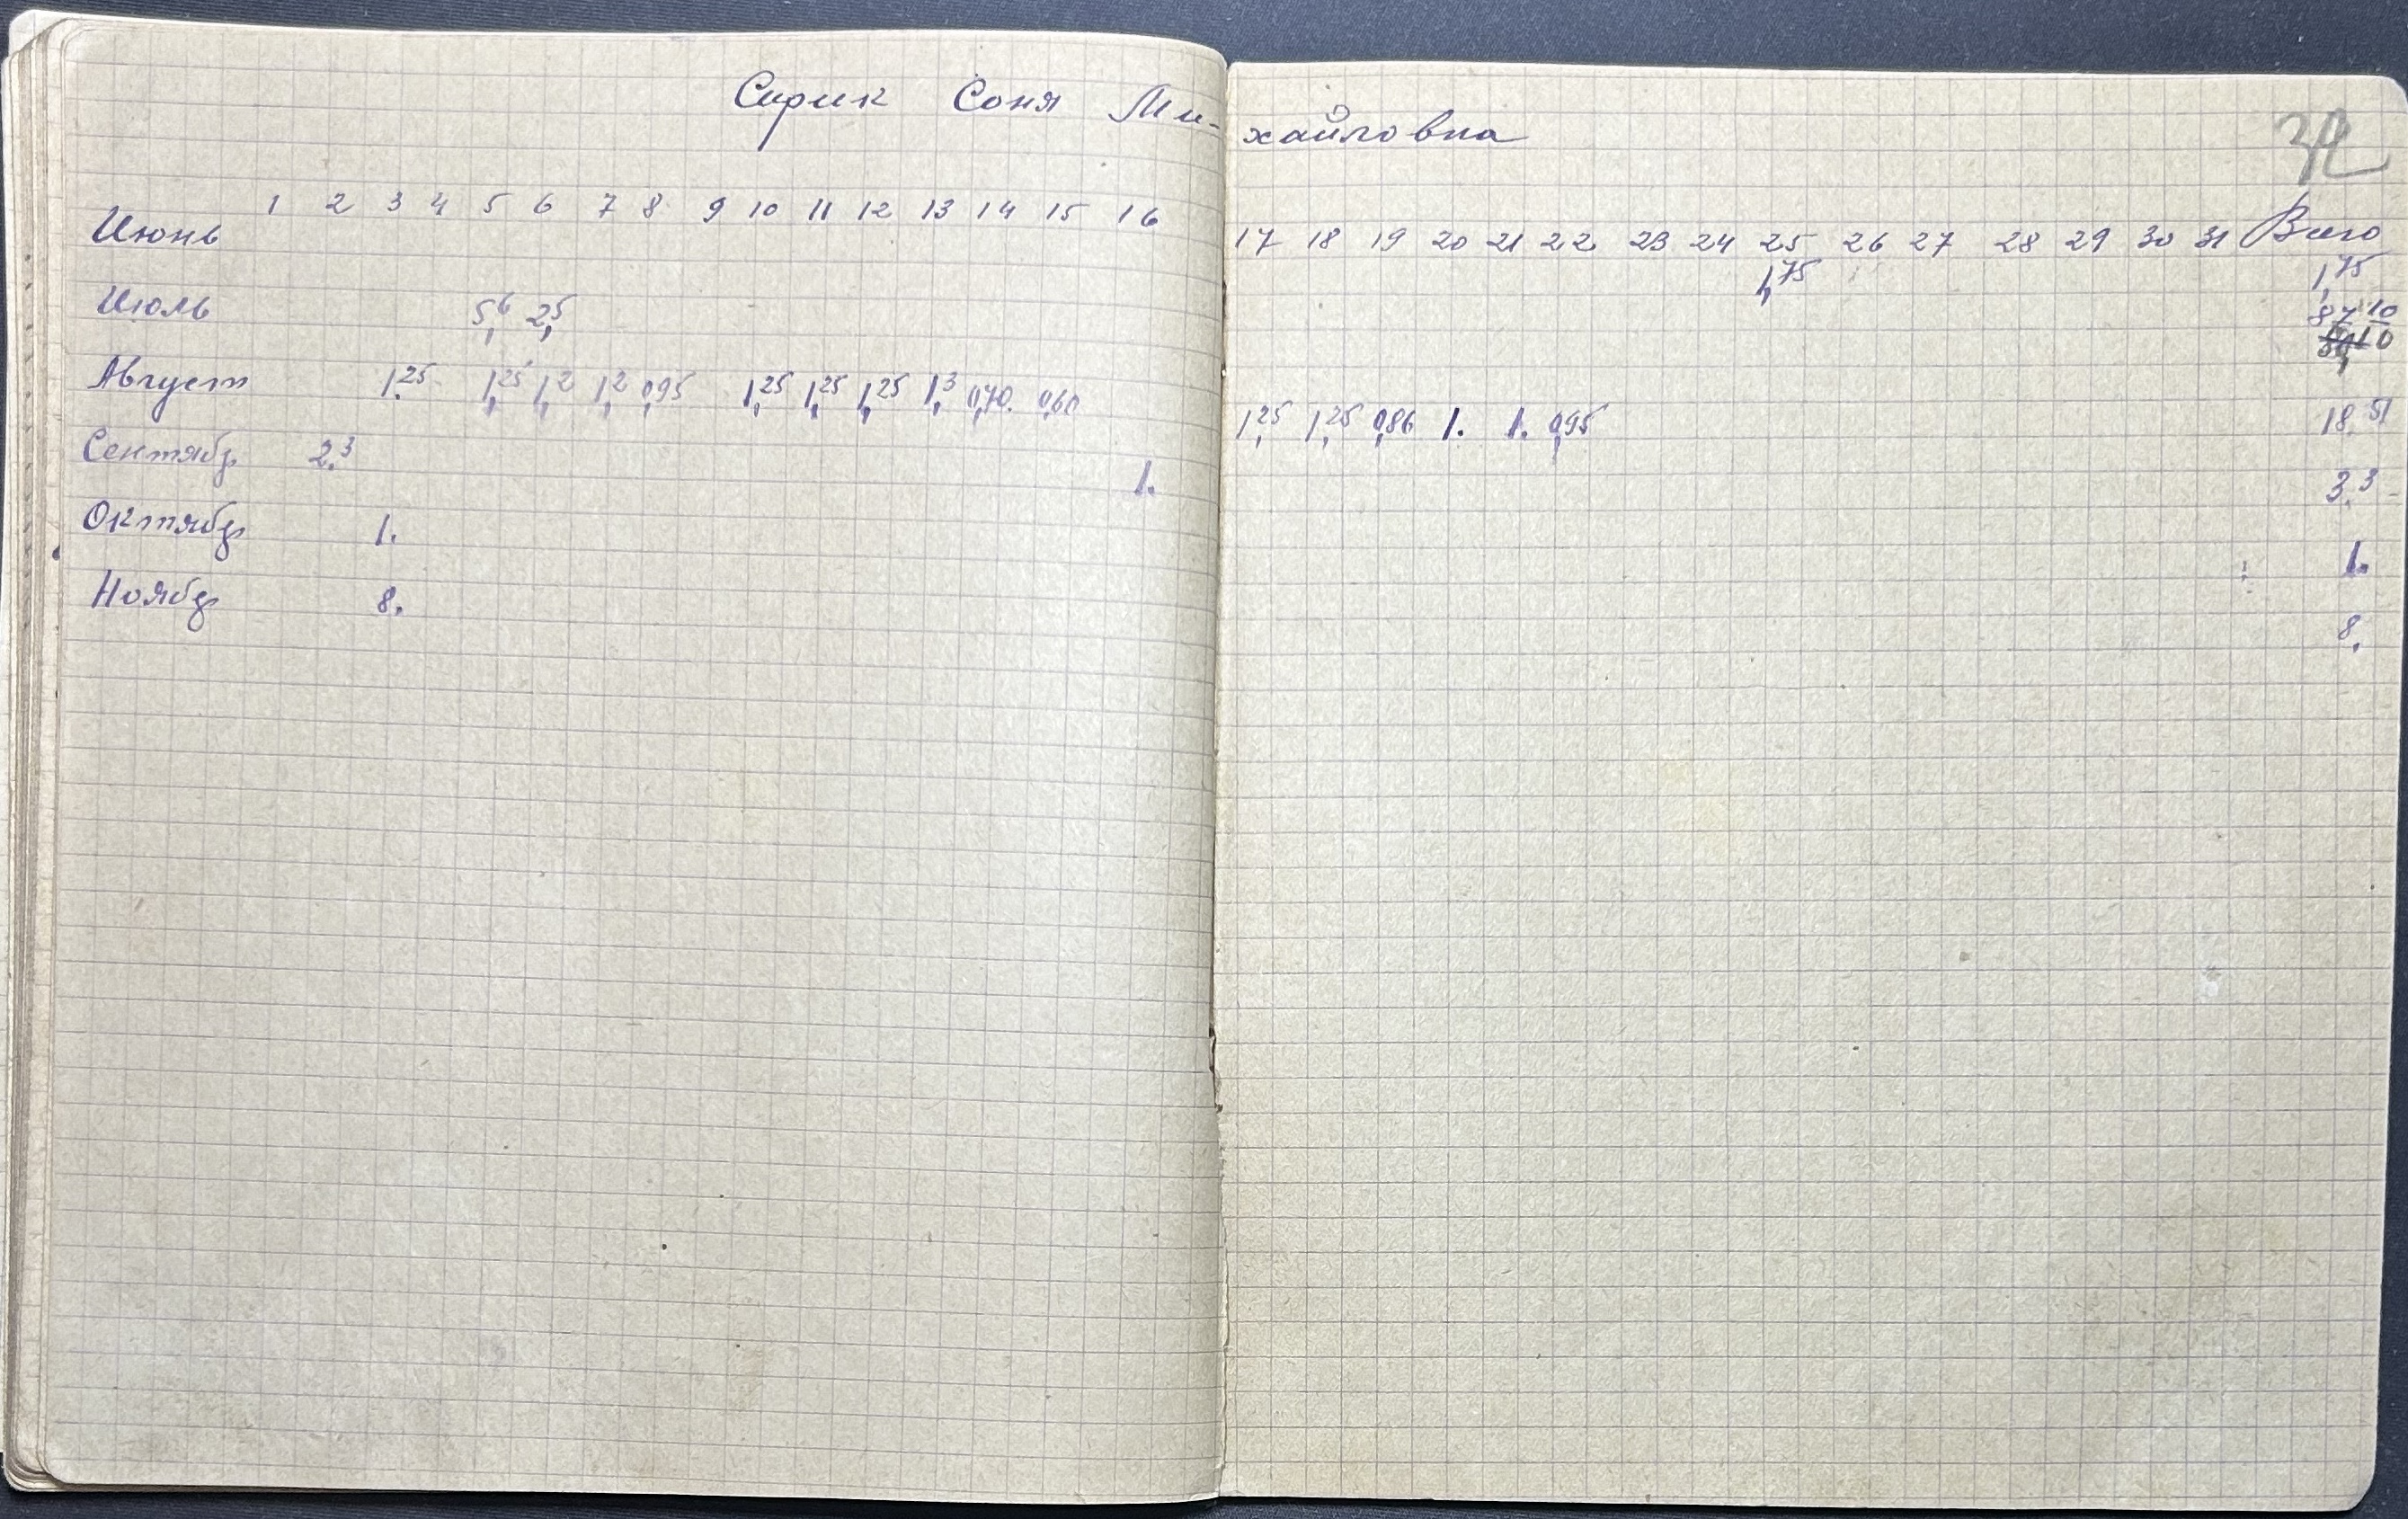 Сирик Соня Ми-
хайловна
32
1 2 3 4 5 6 7 8 9 10 11 12 13 14 15 16 17 18 19 20 21 22 23 24 25 26 27 28 29 30 31 Всего
Июнь 1,75 1,75
Июль 5,6 2,5 8,10
Август 1,25 1,25 1,2 1,2 0,95 1,25 1,25 1,25 1,3 0,70. 0,60 1,25 1,25 0,86 1. 1. 0,95 18,51
Сентябр 2,3 1. 3,3
Октябр 1. 1.
Ноябр 8. 8.